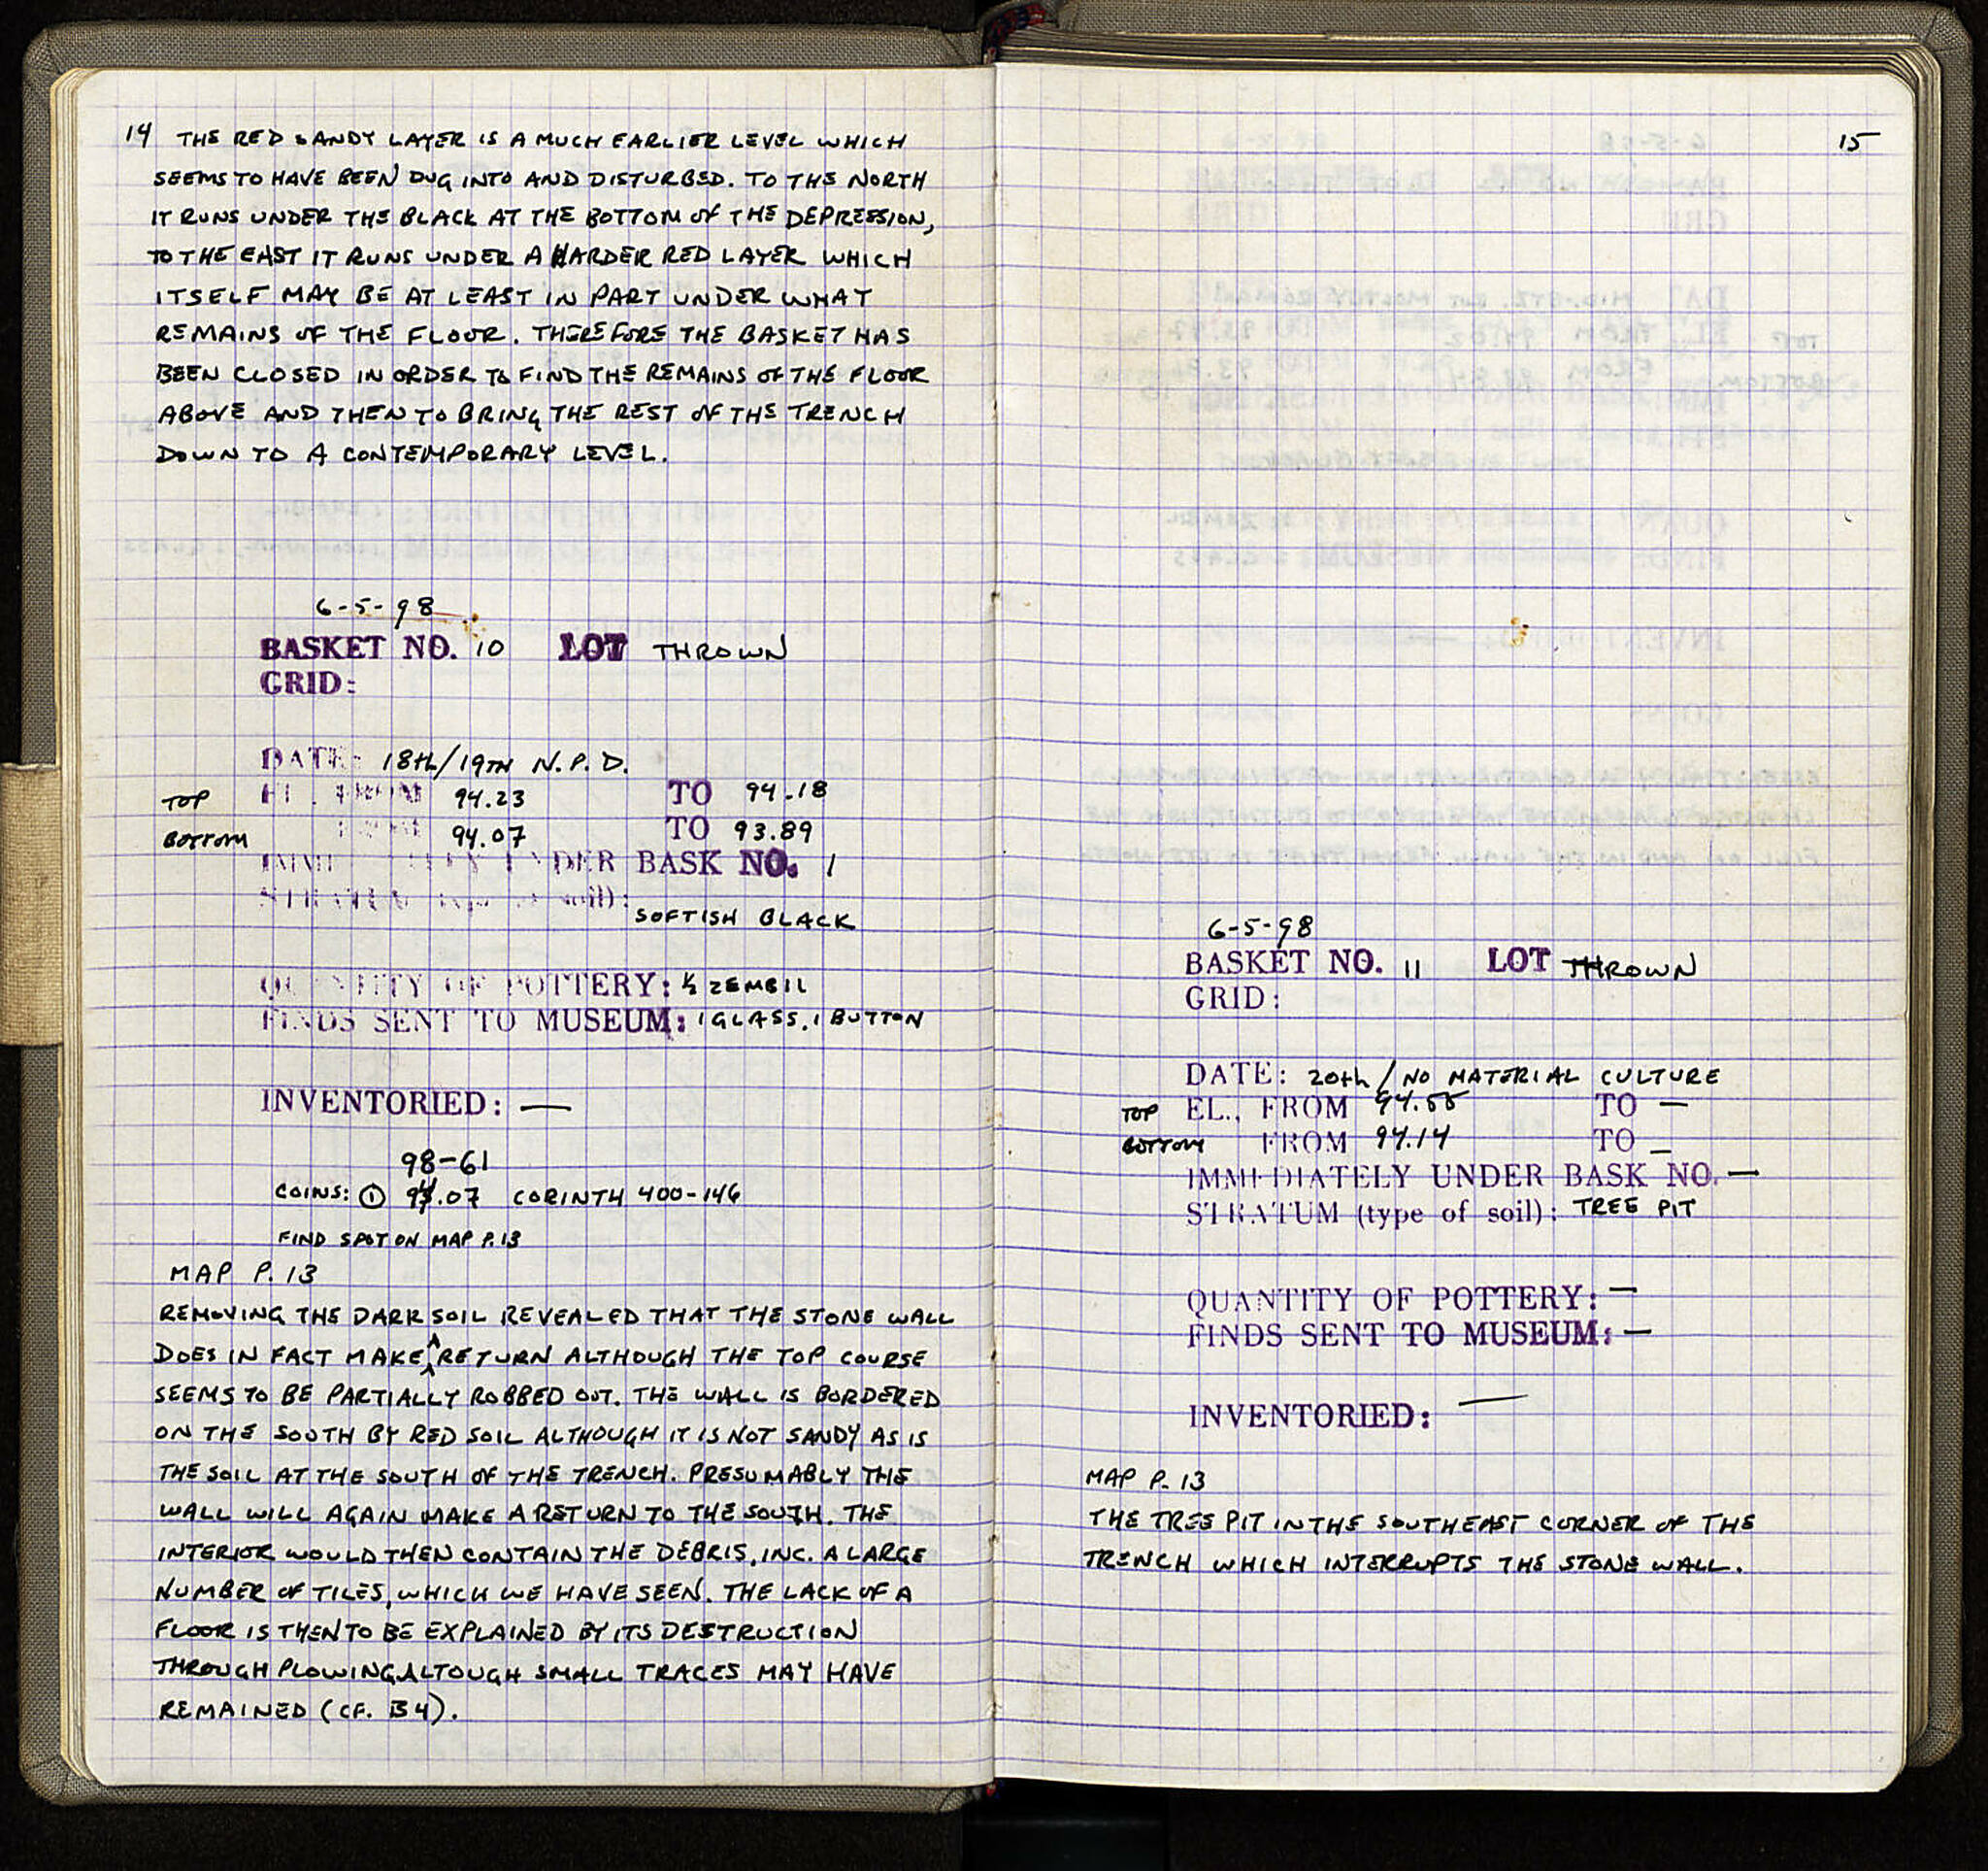 14 THE RED SANDY LAYER IS A MUCH EARLIER LEVEL WHICH
SEEMS TO HAVE BEEN DUG INTO AND DISTURBED. TO THE NORTH
IT RUNS UNDER THE BLACK AT THE BOTTOM OF THE DEPRESSION,
TO THE EAST IT RUNS UNDER A HARDER RED LAYER WHICH
ITSELF MAY BE AT LEAST IN PART UNDER WHAT
REMAINS OF THE FLOOR. THEREFORE THE BASKET HAS
BEEN CLOSED IN ORDER TO FIND THE REMAINS OF THE FLOOR
ABOVE AND THEN TO BRING THE REST OF THE TRENCH
DOWN TO A CONTEMPORARY LEVEL.
6-5-98
BASKET NO. 10 LOT THROWN
GRID:
DATE: 18th/19TH N.P.D.
TOP EL., FROM 94.23 TO 94.18
BOTTOM FROM 94.07 TO 93.89
IMMEDIATELY UNDER BASK NO. 1
STRATUM (type of soil): SOFTISH BLACK
QUANTITY OF POTTERY: ½ ZEMBIL
FINDS SENT TO MUSEUM: 1 GLASS, 1 BUTTON
INVENTORIED: —
98-61
COINS: ① 94.07 CORINTH 400-146
FIND SPOT ON MAP P.13
MAP P. 13
REMOVING THE DARK SOIL REVEALED THAT THE STONE WALL
DOES IN FACT MAKE A RETURN ALTHOUGH THE TOP COURSE
SEEMS TO BE PARTIALLY ROBBED OUT. THE WALL IS BORDERED
ON THE SOUTH BY RED SOIL ALTHOUGH IT IS NOT SANDY AS IS
THE SOIL AT THE SOUTH OF THE TRENCH. PRESUMABLY THE
WALL WILL AGAIN MAKE A RETURN TO THE SOUTH. THE
INTERIOR WOULD THEN CONTAIN THE DEBRIS, INC. A LARGE
NUMBER OF TILES, WHICH WE HAVE SEEN. THE LACK OF A
FLOOR IS THEN TO BE EXPLAINED BY ITS DESTRUCTION
THROUGH PLOWING, ALTOUGH SMALL TRACES MAY HAVE
REMAINED (CF. B4).
15
6-5-98
BASKET NO. 11 LOT THROWN
GRID:
DATE: 20th / NO MATERIAL CULTURE
TOP EL., FROM 94.55 TO —
BOTTOM FROM 94.14 TO —
IMMEDIATELY UNDER BASK NO. —
STRATUM (type of soil): TREE PIT
QUANTITY OF POTTERY: —
FINDS SENT TO MUSEUM: —
INVENTORIED: —
MAP P. 13
THE TREE PIT IN THE SOUTHEAST CORNER OF THE
TRENCH WHICH INTERRUPTS THE STONE WALL.